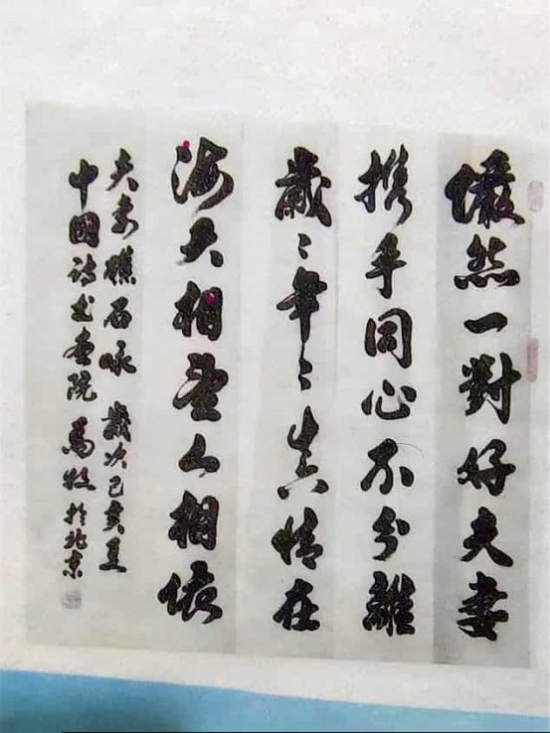 儼然一對好夫妻
携手同心不分離
歲〻年〻真情在
海天相望人相依
夫妻礁石咏 歲次己亥夏
中國詩书畫院 馬牧於北京